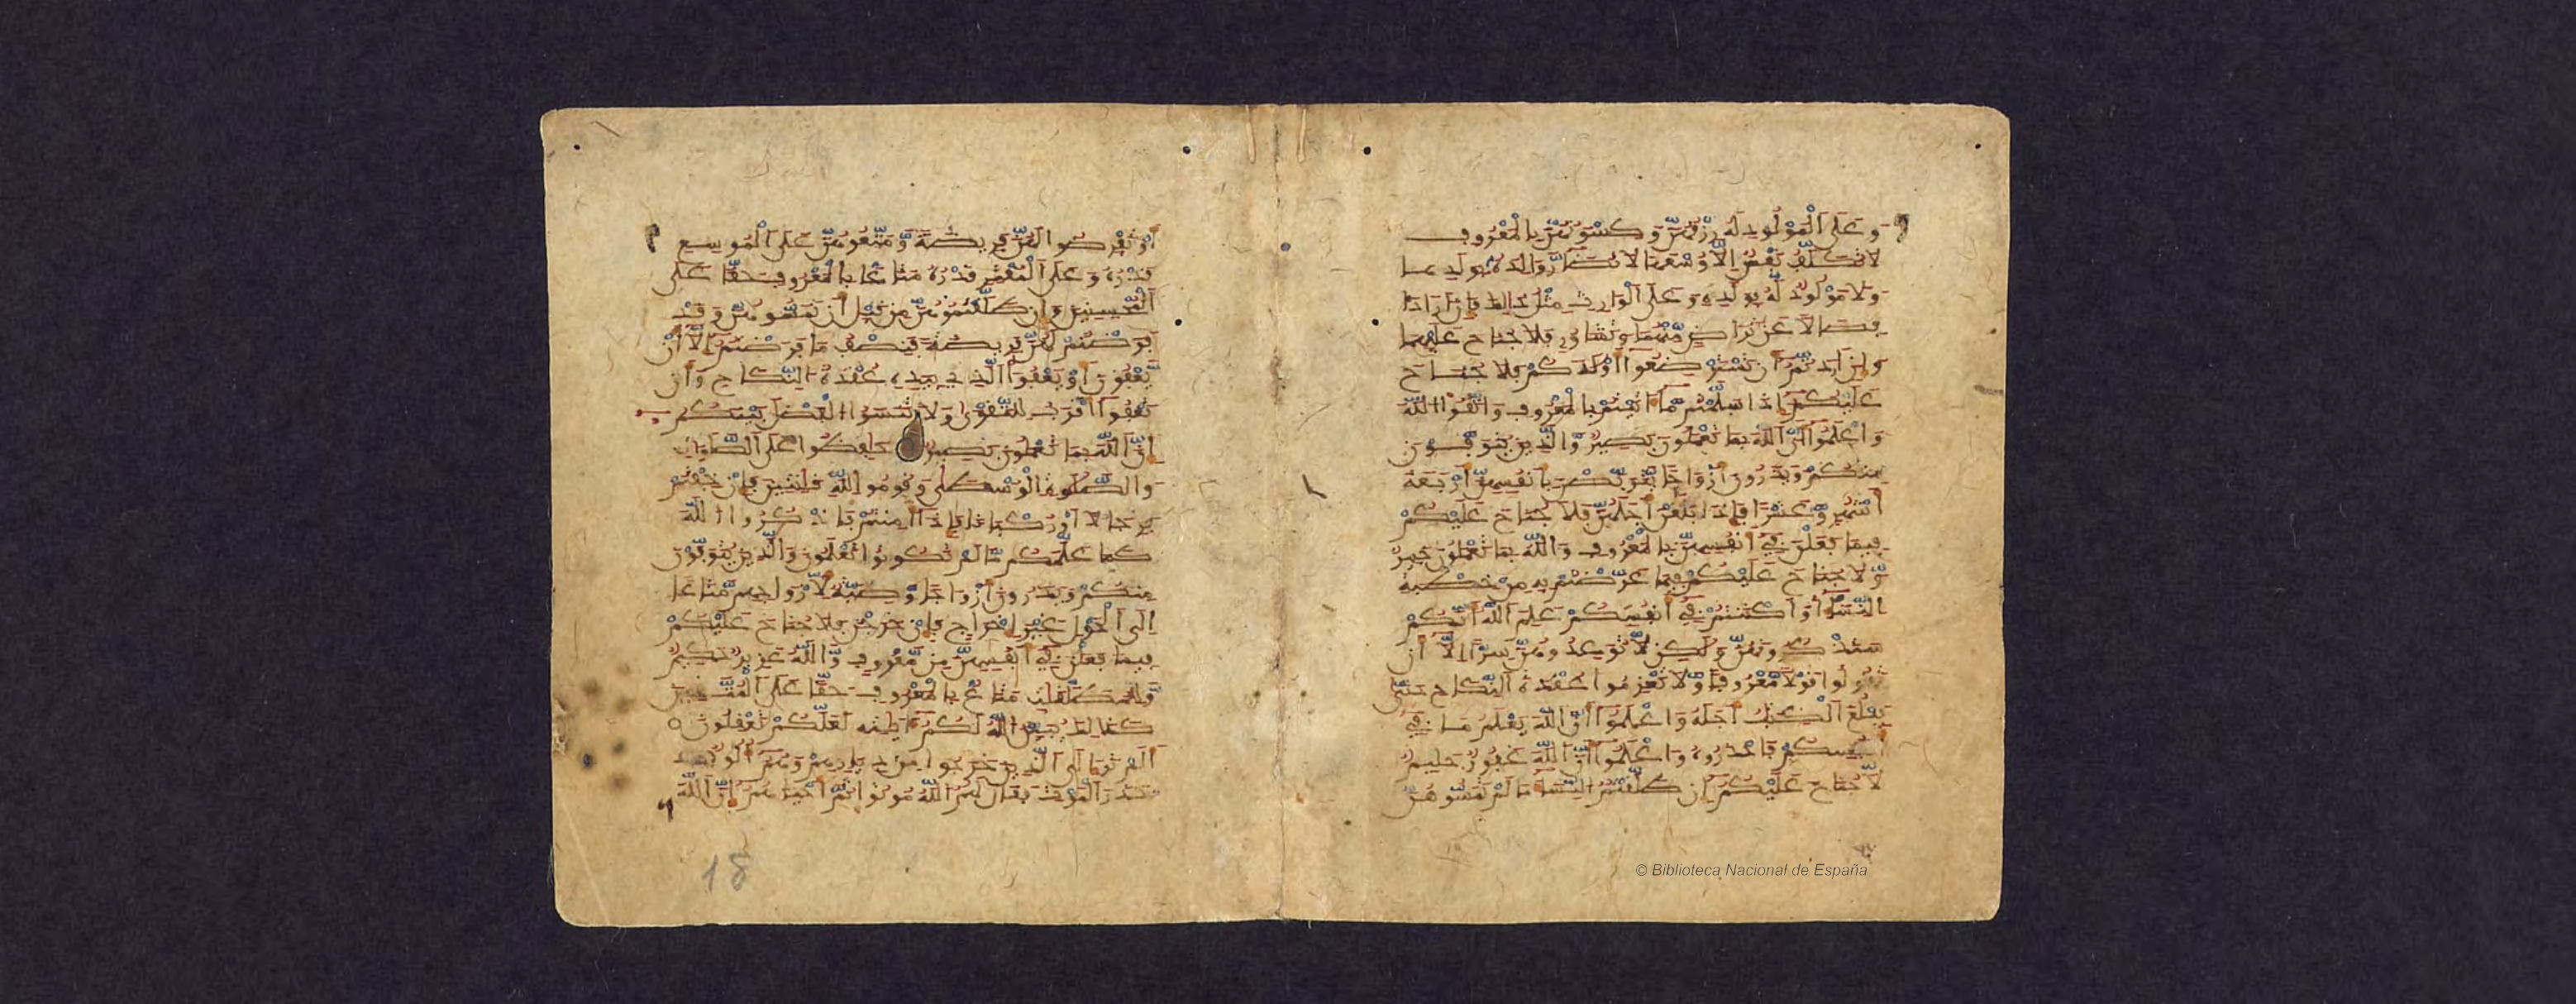 وَعَلَى ٱلْمَوْلُودِ لَهُ رِزْقُهُنَّ وَكِسْوَتُهُنَّ بِالْمَعْرُوفِ
لَا تُكَلَّفُ نَفْسٌ إِلَّا وُسْعَهَا لَا تُضَارَّ وَٰلِدَةٌ بِوَلَدِهَا
وَلَا مَوْلُودٌ لَّهُ بِوَلَدِهِ وَعَلَى ٱلْوَارِثِ مِثْلُ ذَٰلِكَ فَإِنْ أَرَادَا
فِصَالًا عَن تَرَاضٍ مِّنْهُمَا وَتَشَاوُرٍ فَلَا جُنَاحَ عَلَيْهِمَا
وَإِنْ أَرَدتُّمْ أَن تَسْتَرْضِعُوا أَوْلَٰدَكُمْ فَلَا جُنَاحَ
عَلَيْكُمْ إِذَا سَلَّمْتُم مَّا ءَاتَيْتُم بِالْمَعْرُوفِ وَاتَّقُوا ٱللَّهَ
وَاعْلَمُوا أَنَّ ٱللَّهَ بِمَا تَعْمَلُونَ بَصِيرٌ وَالَّذِينَ يُتَوَفَّوْنَ
مِنكُمْ وَيَذَرُونَ أَزْوَاجًا يَتَرَبَّصْنَ بِأَنفُسِهِنَّ أَرْبَعَةَ
أَشْهُرٍ وَعَشْرًا فَإِذَا بَلَغْنَ أَجَلَهُنَّ فَلَا جُنَاحَ عَلَيْكُمْ
فِيمَا فَعَلْنَ فِي أَنفُسِهِنَّ بِالْمَعْرُوفِ وَاللَّهُ بِمَا تَعْمَلُونَ خَبِيرٌ
وَلَا جُنَاحَ عَلَيْكُمْ فِيمَا عَرَّضْتُم بِهِ مِنْ خِطْبَةِ
ٱلنِّسَاءِ أَوْ أَكْنَنتُمْ فِي أَنفُسِكُمْ عَلِمَ ٱللَّهُ أَنَّكُمْ
سَتَذْكُرُونَهُنَّ وَلَٰكِن لَّا تُوَاعِدُوهُنَّ سِرًّا إِلَّا أَن
تَقُولُوا قَوْلًا مَّعْرُوفًا وَلَا تَعْزِمُوا عُقْدَةَ ٱلنِّكَاحِ حَتَّىٰ
يَبْلُغَ ٱلْكِتَٰبُ أَجَلَهُ وَاعْلَمُوا أَنَّ ٱللَّهَ يَعْلَمُ مَا فِي
أَنفُسِكُمْ فَاحْذَرُوهُ وَاعْلَمُوا أَنَّ ٱللَّهَ غَفُورٌ حَلِيمٌ
لَّا جُنَاحَ عَلَيْكُمْ إِن طَلَّقْتُمُ ٱلنِّسَاءَ مَا لَمْ تَمَسُّوهُنَّ
© Biblioteca Nacional de España
أَوْ تَفْرِضُوا لَهُنَّ فَرِيضَةً وَمَتِّعُوهُنَّ عَلَى ٱلْمُوسِعِ
قَدْرُهُ وَعَلَى ٱلْمُقْتِرِ قَدْرُهُ مَتَاعًا بِالْمَعْرُوفِ حَقًّا عَلَى
ٱلْمُحْسِنِينَ وَإِن طَلَّقْتُمُوهُنَّ مِن قَبْلِ أَن تَمَسُّوهُنَّ وَقَدْ
فَرَضْتُمْ لَهُنَّ فَرِيضَةً فَنِصْفُ مَا فَرَضْتُمْ إِلَّا أَنْ
يَّعْفُونَ أَوْ يَعْفُوَا ٱلَّذِي بِيَدِهِ عُقْدَةُ ٱلنِّكَاحِ وَأَن
تَعْفُوا أَقْرَبُ لِلتَّقْوَىٰ وَلَا تَنسَوُا ٱلْفَضْلَ بَيْنَكُمْ
إِنَّ ٱللَّهَ بِمَا تَعْمَلُونَ بَصِيرٌ حَٰفِظُوا عَلَى ٱلصَّلَوَٰتِ
وَالصَّلَوٰةِ ٱلْوُسْطَىٰ وَقُومُوا لِلَّهِ قَٰنِتِينَ فَإِنْ خِفْتُمْ
فَرِجَالًا أَوْ رُكْبَانًا فَإِذَا أَمِنتُمْ فَاذْكُرُوا ٱللَّهَ
كَمَا عَلَّمَكُم مَّا لَمْ تَكُونُوا تَعْلَمُونَ وَالَّذِينَ يُتَوَفَّوْنَ
مِنكُمْ وَيَذَرُونَ أَزْوَاجًا وَصِيَّةٌ لِّأَزْوَاجِهِم مَّتَاعًا
إِلَى ٱلْحَوْلِ غَيْرَ إِخْرَاجٍ فَإِنْ خَرَجْنَ فَلَا جُنَاحَ عَلَيْكُمْ
فِيمَا فَعَلْنَ فِي أَنفُسِهِنَّ مِن مَّعْرُوفٍ وَاللَّهُ عَزِيزٌ حَكِيمٌ
وَلِلْمُطَلَّقَٰتِ مَتَاعٌ بِالْمَعْرُوفِ حَقًّا عَلَى ٱلْمُتَّقِينَ
كَذَٰلِكَ يُبَيِّنُ ٱللَّهُ لَكُمْ ءَايَٰتِهِ لَعَلَّكُمْ تَعْقِلُونَ
أَلَمْ تَرَ إِلَى ٱلَّذِينَ خَرَجُوا مِن دِيَٰرِهِمْ وَهُمْ أُلُوفٌ
حَذَرَ ٱلْمَوْتِ فَقَالَ لَهُمُ ٱللَّهُ مُوتُوا ثُمَّ أَحْيَٰهُمْ إِنَّ ٱللَّهَ
18